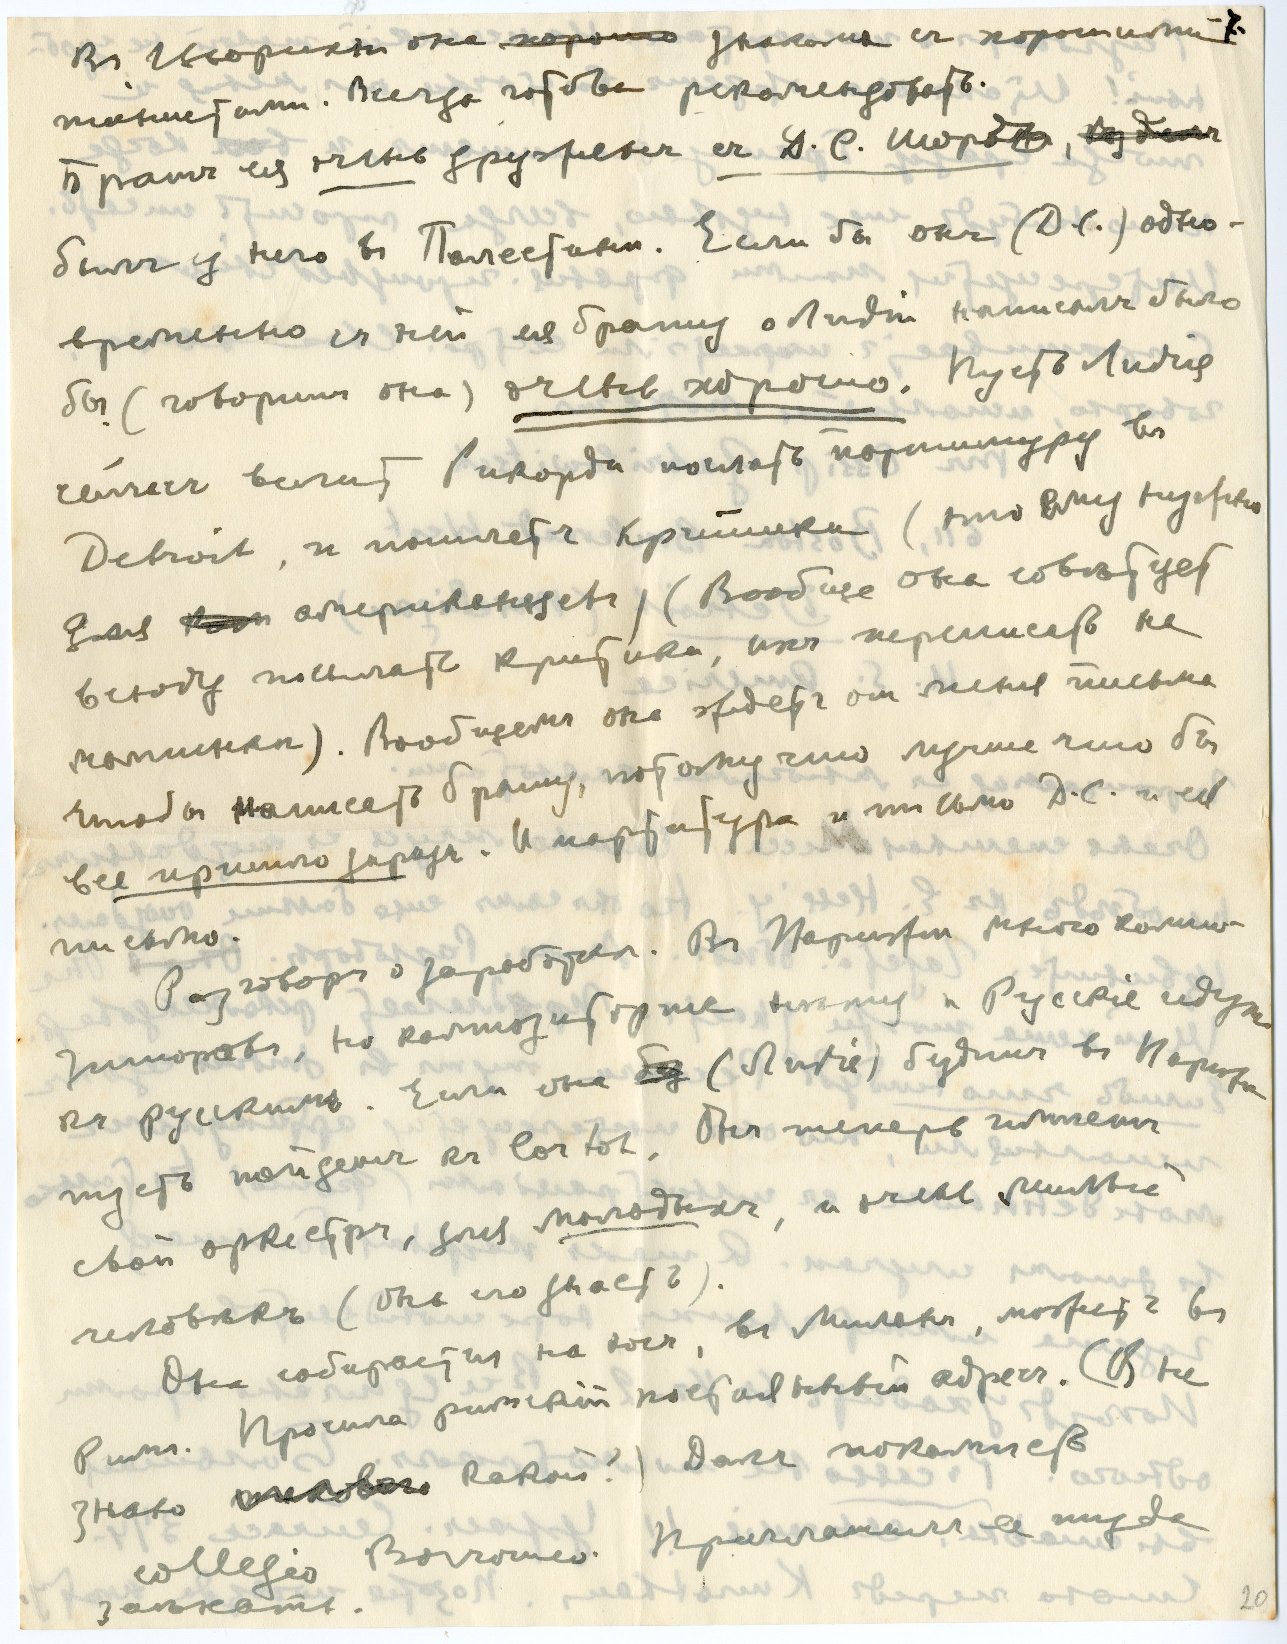 7.
Въ Цюрихѣ она хорошо знакома съ хорошими
піанистами. Всегда готова рекомендовать.
Братъ ея очень друженъ съ Д. С. Шоръ,
былъ у него въ Палестинѣ. Если бы онъ (Д.С.) одно-
временно съ ней ея брату о Лидіи написалъ было
бы (говоритъ она) очень хорошо. Пусть Лидія
сейчасъ велитъ Рикорди послать партитуру въ
Detroit, и пошлетъ критики (это ему нужно
для американцевъ) (Вообще она совѣтуетъ
всюду посылать критики, ихъ переписать на
машинкѣ). Вообщемъ она ждетъ от меня письма
чтобы написать брату, потому что лучше что бы
все пришло заразъ. И партитура и письмо Д.С. и ея
письмо.
Разговоръ о заработкѣ. Въ Парижѣ много компо-
зиторовъ, но композиторше никому и Русскіе идутъ
къ русскимъ. Если она (Лидія) будетъ въ Парижѣ
пусть пойдетъ къ Cortot. Онъ теперь имѣетъ
свой оркестръ, для молодыхъ, и очень милый
человѣкъ (она его знаетъ).
Она собирается на югъ, въ Миланъ, можетъ въ
Римъ. Просила римскій постоянный адресъ. (Я не
знаю какой?) Далъ покамѣстъ
collegio Borromeo. Приглашалъ ее туда
заѣхать.
20